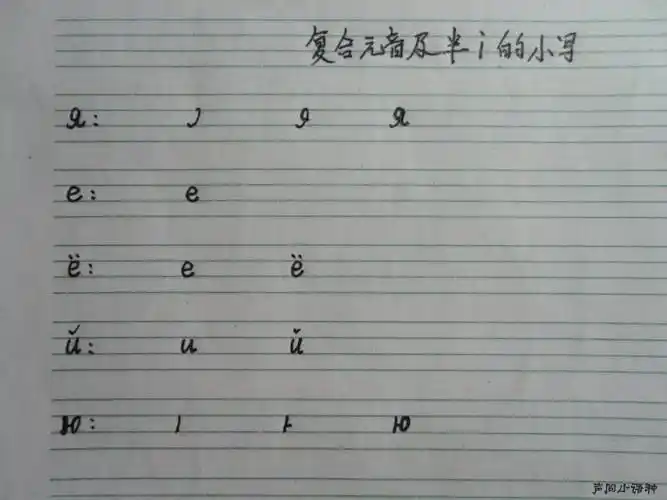 复合元音及半i的小写
я: ɿ я я
е: е
ё: е ё
й: и й
ю: ı ⊢ ю
声同小语种